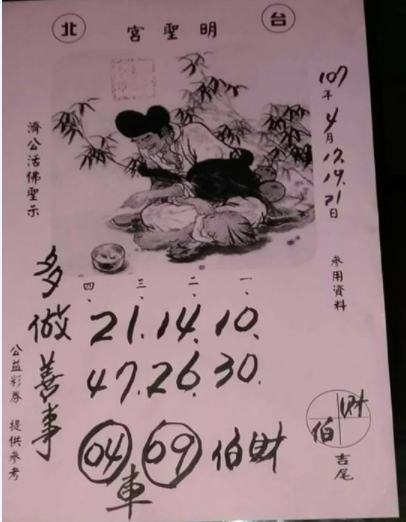 台北
明聖宮
107年4月17.19.21日
參用資料
濟公活佛聖示
一、二、三、四、
10.14.21.
30.26.47.
伯財 09 04
車
多做善事
財伯
吉尾
公益彩券 提供參考